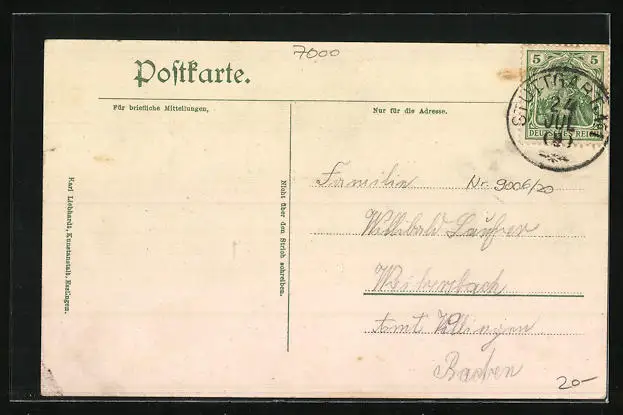 7000
Postkarte.
5 5
DEUTSCHES REICH
STUTTGART
24
JUL
Für briefliche Mitteilungen,
Nur für die Adresse.
Karl Liebhardt, Kunstanstalt, Esslingen.
Nicht über den Strich schreiben.
Familie
Nr. 9006/20
Willibald
Amt Villingen
Baden
20-